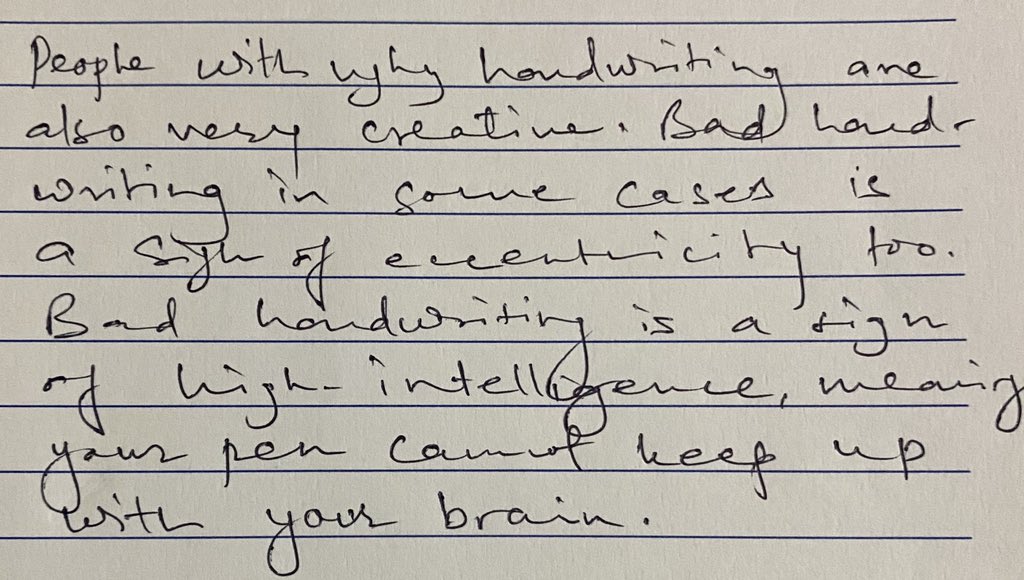 People with ugly handwriting are
also very creative. Bad hand-
writing in some cases is
a sign of eccentricity too.
Bad handwriting is a sign
of high-intelligence, meaning
your pen cannot keep up
with your brain.